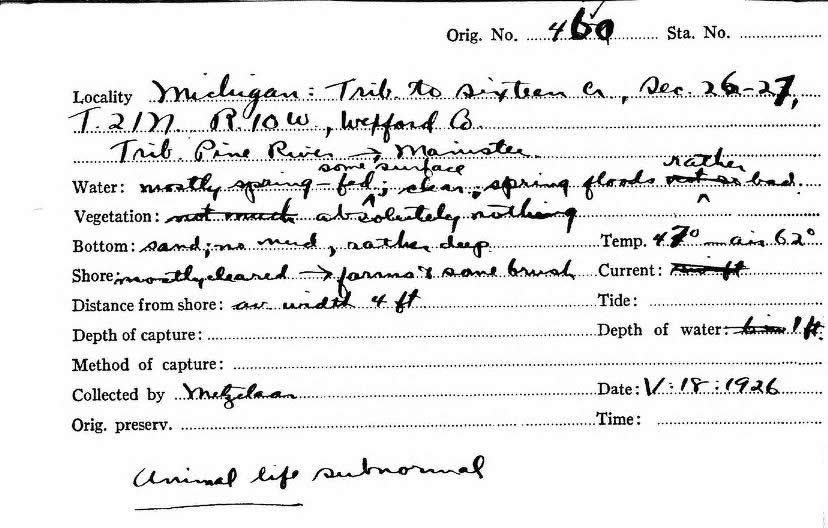 Orig. No. 460 Sta. No.
Locality Michigan: Trib. to Sixteen Cr., Sec. 26-27,
T. 21N R. 10W, Wexford Co.
Trib. Pine River → Manistee
some surface rather
Water: mostly spring-fed; clear; spring floods not so bad.
Vegetation: not much absolutely nothing
Bottom: sand; no mud, rather deep Temp. 47° — air 62°
Shore: mostly cleared → farms & some brush Current: ft
Distance from shore: av. width 4 ft Tide:
Depth of capture: Depth of water: 1 ft.
Method of capture:
Collected by Metzelaar Date: V:18:1926
Orig. preserv. Time:
Animal life subnormal